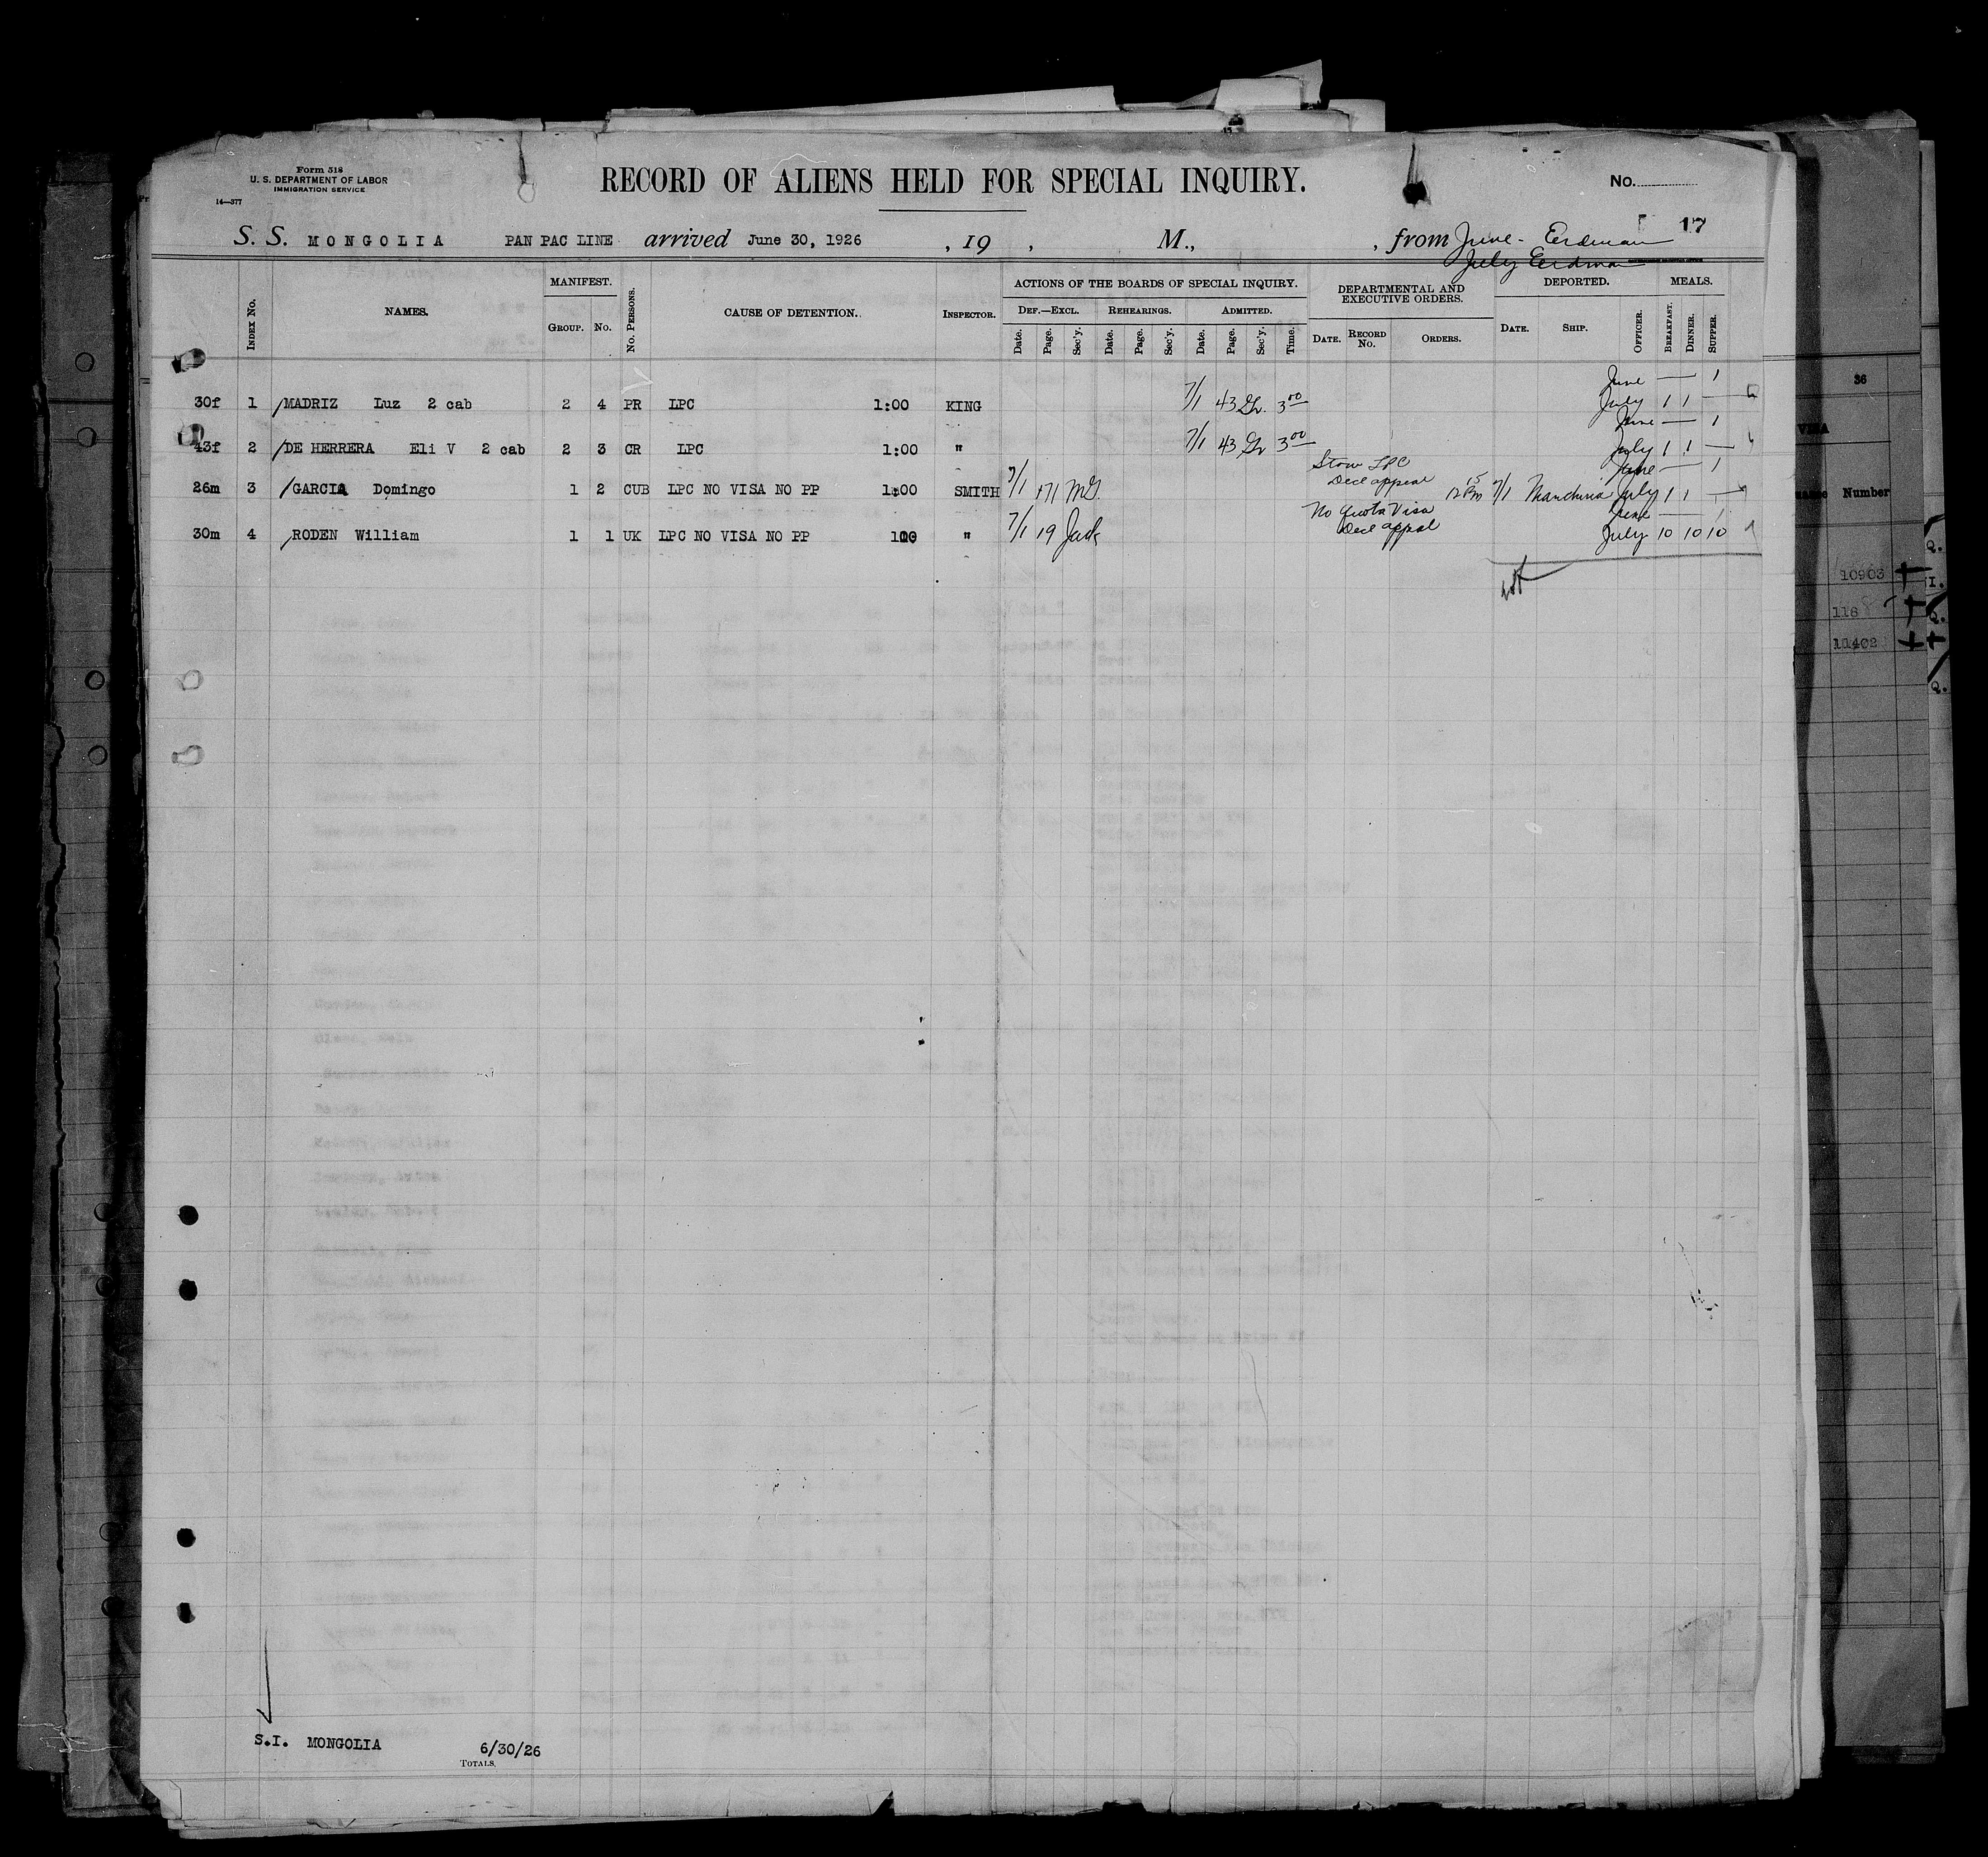 Form 518
U. S. DEPARTMENT OF LABOR
IMMIGRATION SERVICE
14—377
RECORD OF ALIENS HELD FOR SPECIAL INQUIRY.
No.
17
S. S. MONGOLIA PAN PAC LINE arrived June 30, 1926 , 19 , M., , from June - Erdman
July Erdman
Index No. NAMES. MANIFEST. Group. No. No. Persons. CAUSE OF DETENTION. Inspector. ACTIONS OF THE BOARDS OF SPECIAL INQUIRY. DEPARTMENTAL AND EXECUTIVE ORDERS. DEPORTED. MEALS.
Def.—Excl. Rehearings. Admitted.
Date. Page. Sec'y. Date. Page. Sec'y. Date. Page. Sec'y. Time. Date. Record No. Orders. Date. Ship. Officer. Breakfast. Dinner. Supper.
June — 1
30f 1 MADRIZ Luz 2 cab 2 4 PR LPC 1:00 KING 7/1 43 3 00 July 1 1 —
June — 1
43f 2 DE HERRERA Eli V 2 cab 2 3 CR LPC 1:00 " 7/1 43 3 00 July 1 1 —
Stow LPC June — 1
26m 3 GARCIA Domingo 1 2 CUB LPC NO VISA NO PP 1:00 SMITH 7/1 171 McG. Decl appeal 12 15 PM 7/1 Manchuria July 1 1 —
No Quota Visa June — 1
30m 4 RODEN William 1 1 UK LPC NO VISA NO PP 100 " 7/1 19 Jack Decl appeal July 10 10 10
S.I. MONGOLIA 6/30/26
Totals.
36
VISA
Number
10903
118
11402
Q.
I.
Q.
Q.